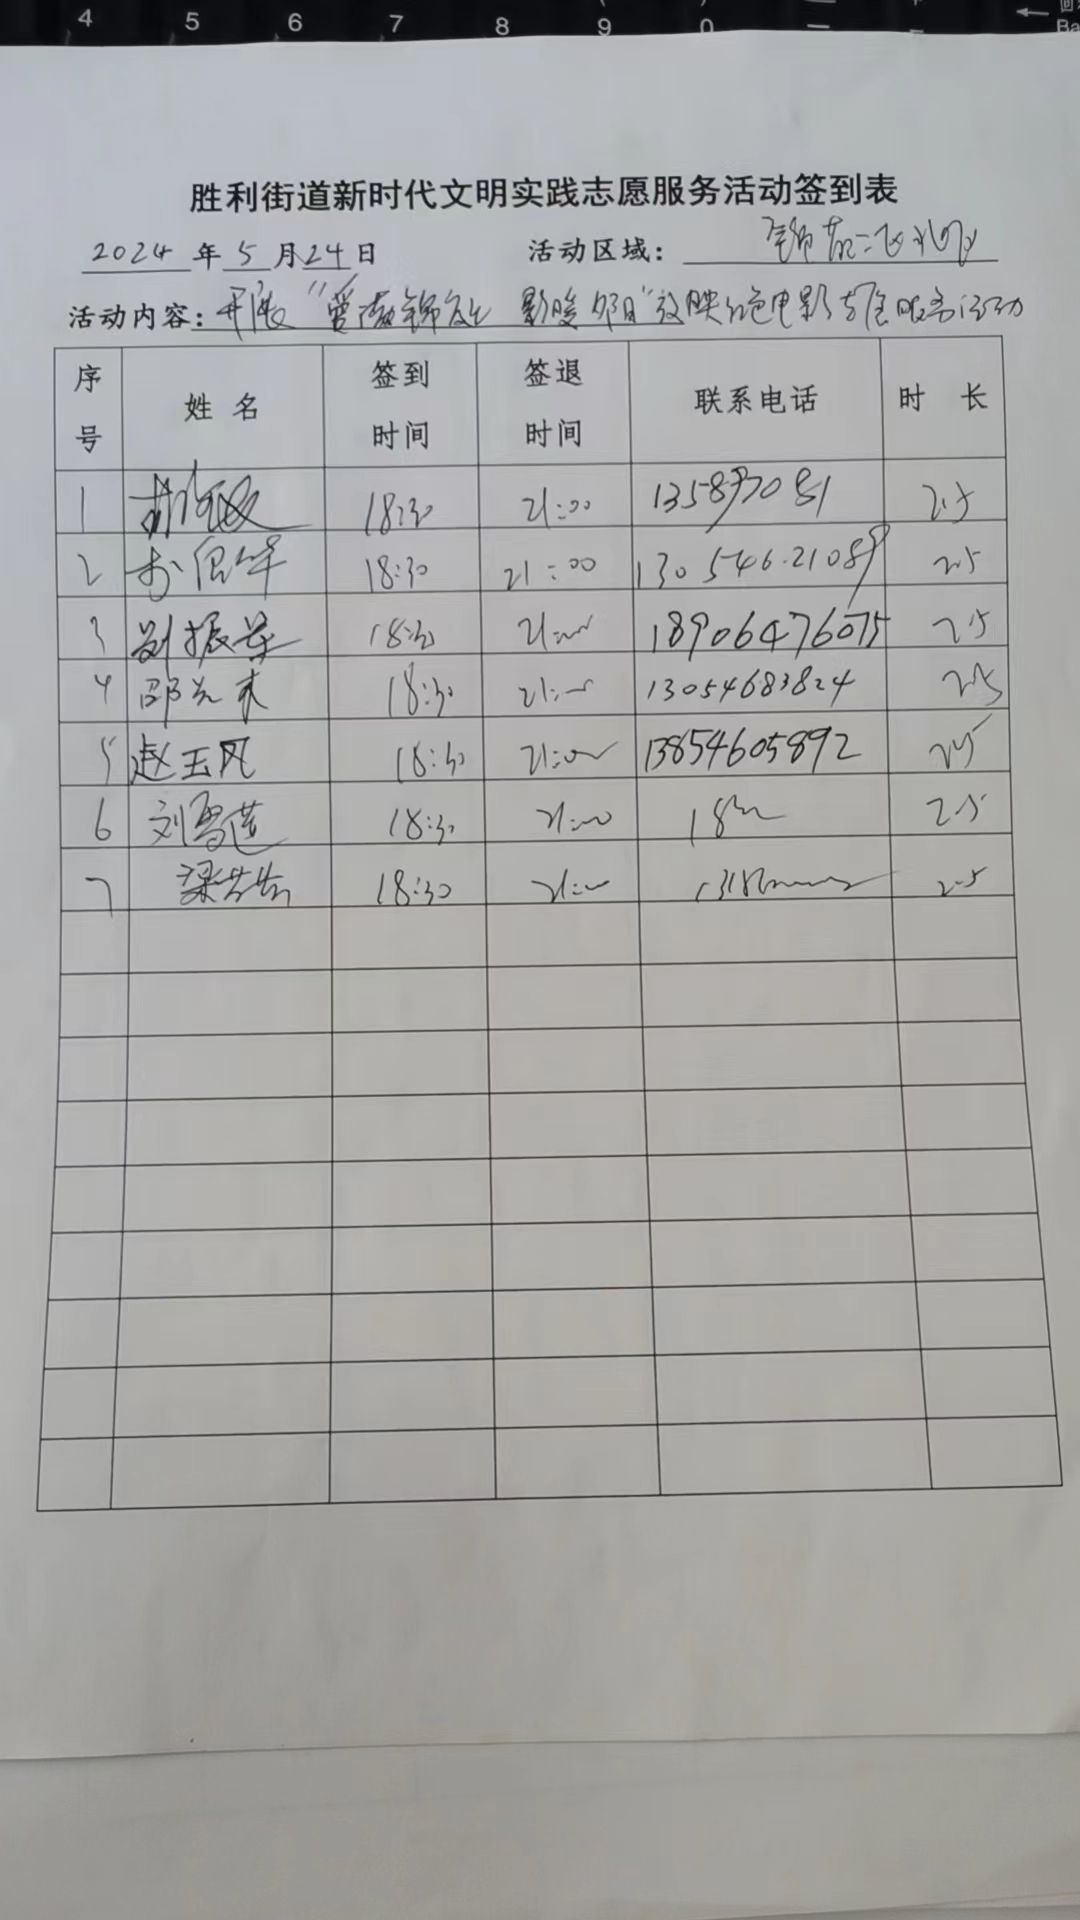 4 5 6 7 8 9 0
胜利街道新时代文明实践志愿服务活动签到表
2024 年 5 月 24 日 活动区域：
活动内容：开展“ 影暖 ”放映红色电影 服务活动
序号 姓名 签到时间 签退时间 联系电话 时长
1 18:30 21:00 2.5
2 18:30 21:00 130546.21089 2.5
3 刘振 18:30 21:00 18906476075 2.5
4 邵 18:30 21:00 13054683824 2.5
5 赵玉风 18:30 21:00 13854605892 2.5
6 刘雪莲 18:30 21:00 18 2.5
7 梁 18:30 21:00 2.5